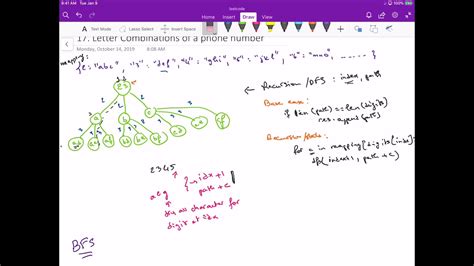 9:41 AM Tue Jan 8
leetcode
Home Insert Draw View
17. Letter Combinations of a phone number
Monday, October 14, 2019 8:08 AM
mapping:
{2:"abc", "3":"def", "4":"ghi", "5":"jkl", "6":"mno", ......}
23
a b c
← Recursion/DFS: index, path
Base case:
if len(path)==len(digits)
res.append(path)
for c in mapping[digits[index]]:
dfs(index+1, path+c)
2345
idx+1
path+c
character for
digit at idx
BFS